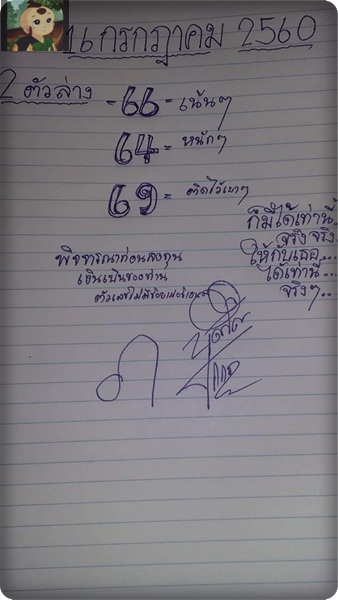 16 กรกฎาคม 2560
2 ตัวล่าง
-66= เน้นๆ
64= หนักๆ
69= ติดไว้เบาๆ
ก็มีได้เท่านี้..
จริงจริง
ให้กับเธอ...
ได้เท่านี้...
จริงๆ..
พิจารณาก่อนลงทุน
เงินเป็นของท่าน